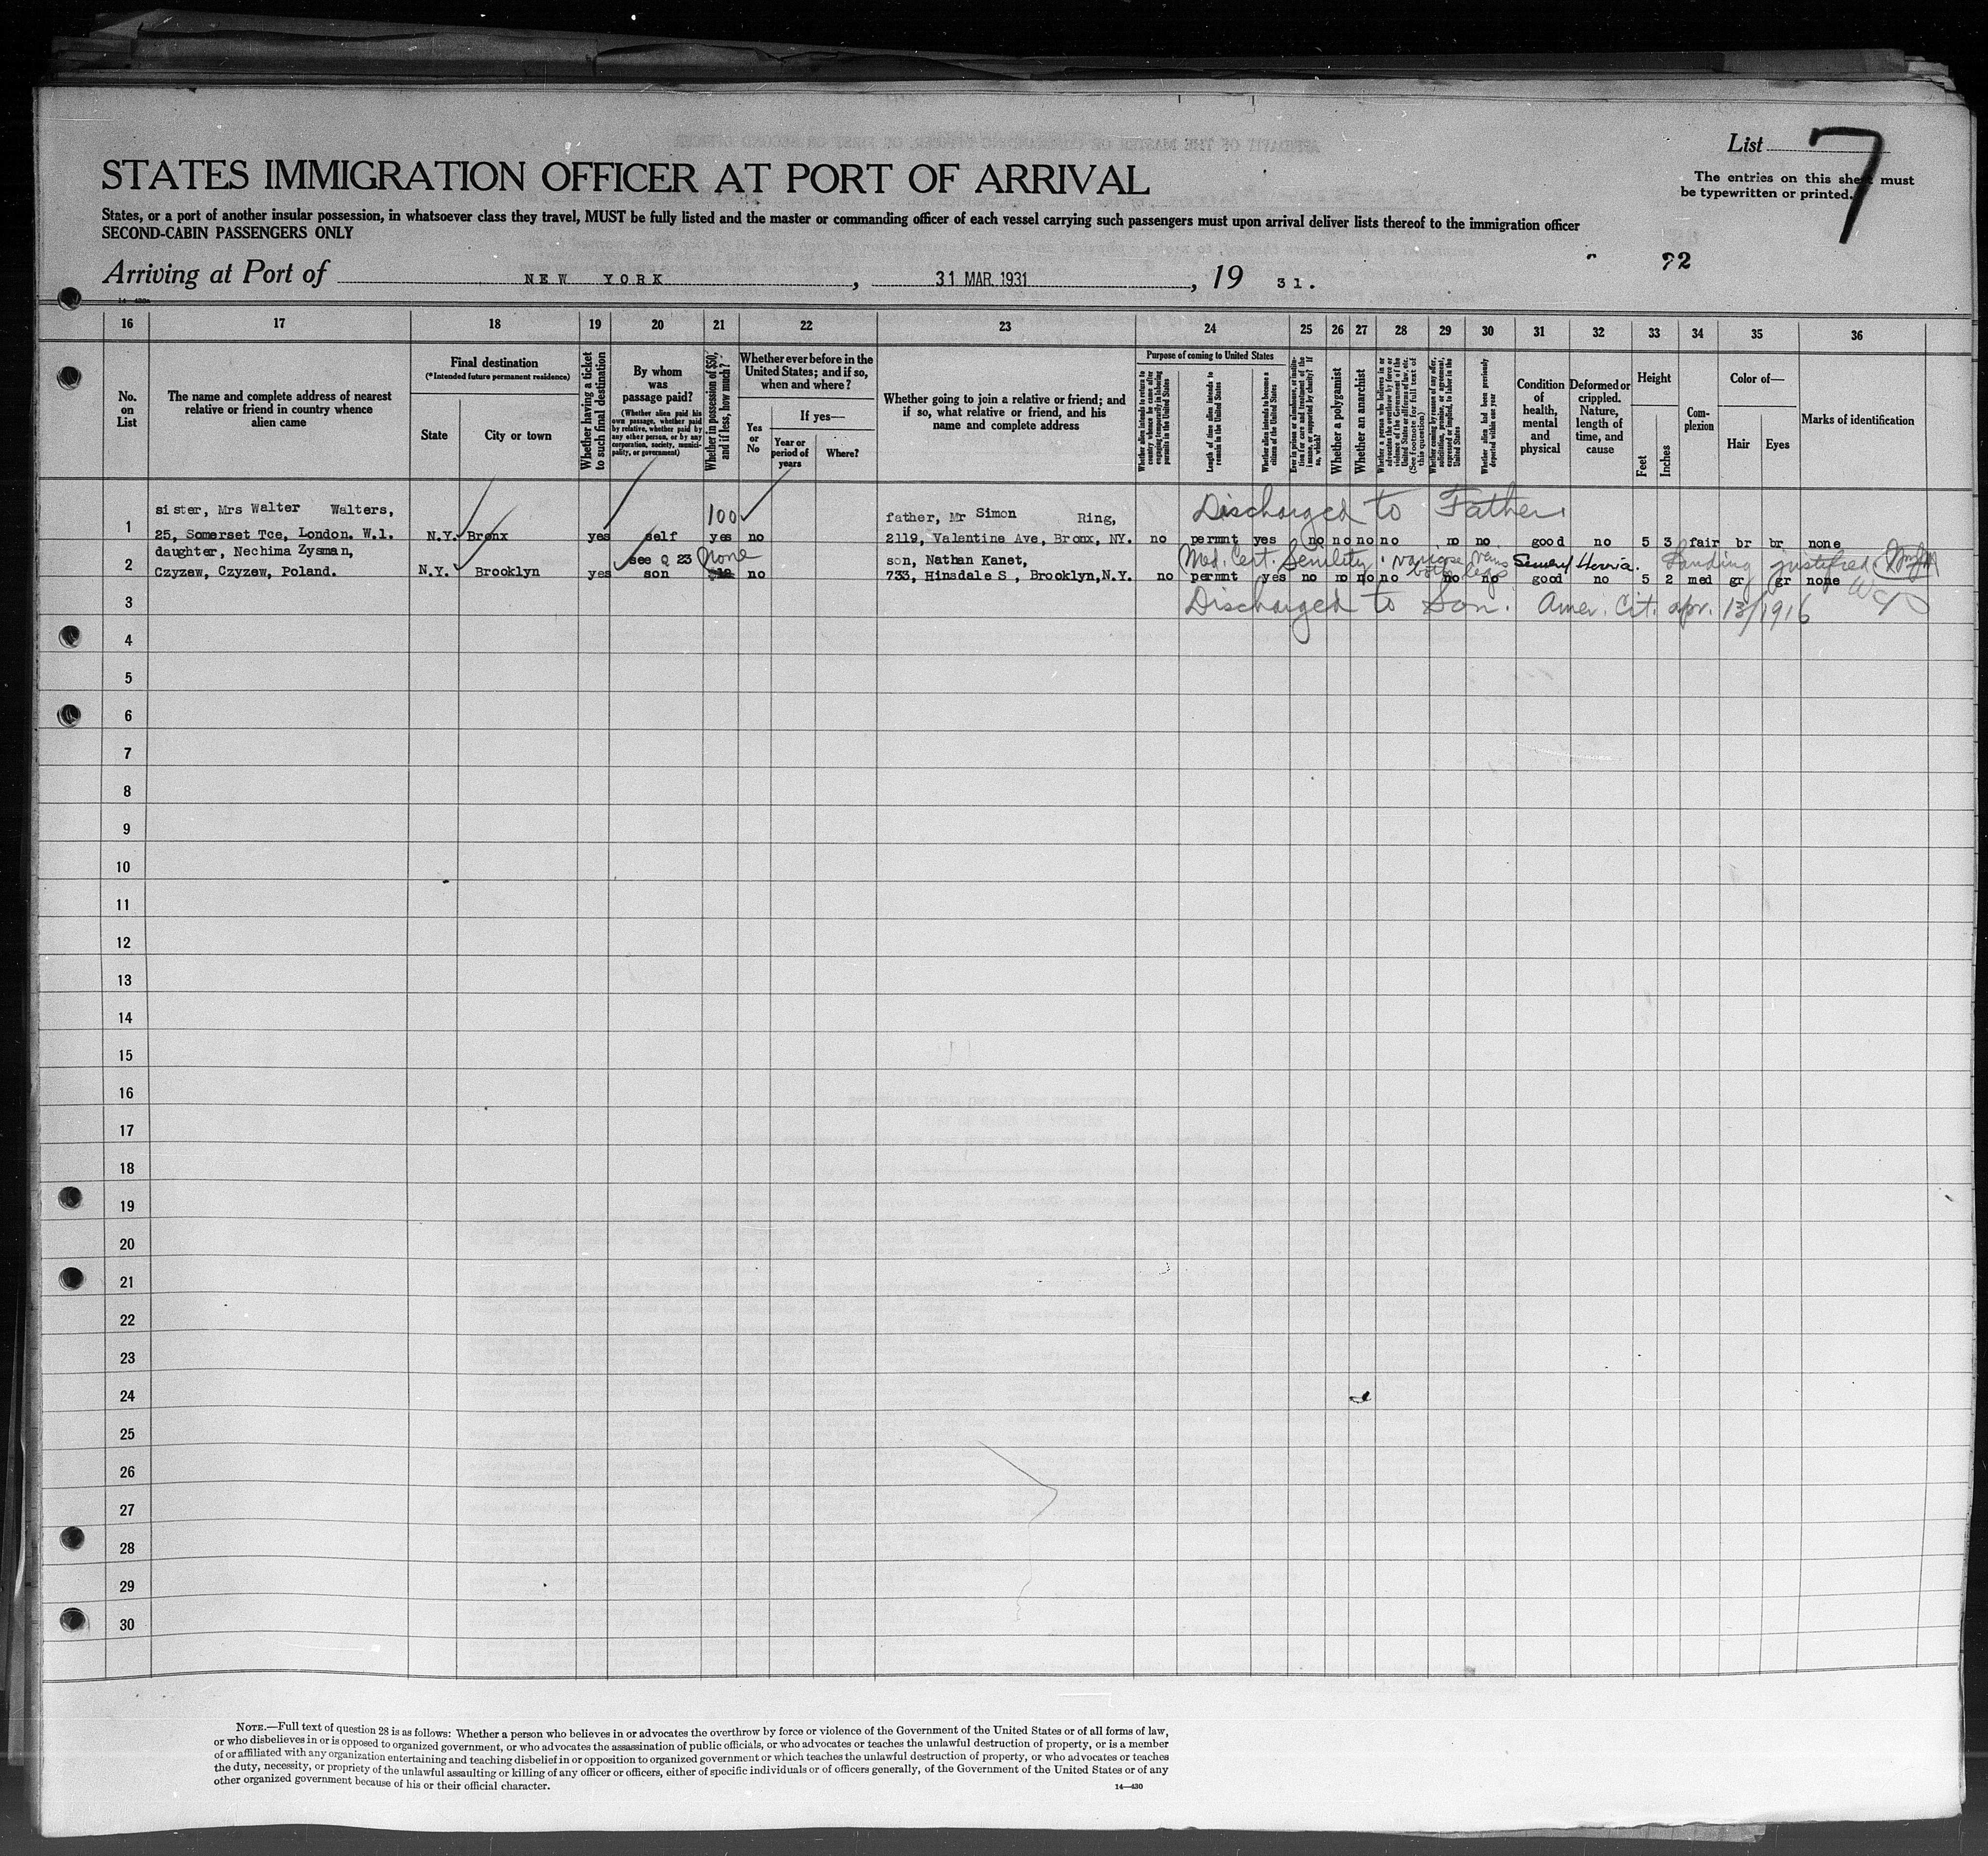 List 7
The entries on this sheet must
be typewritten or printed.
STATES IMMIGRATION OFFICER AT PORT OF ARRIVAL
States, or a port of another insular possession, in whatsoever class they travel, MUST be fully listed and the master or commanding officer of each vessel carrying such passengers must upon arrival deliver lists thereof to the immigration officer
SECOND-CABIN PASSENGERS ONLY
92
Arriving at Port of NEW YORK, 31 MAR 1931, 19 31.
16 17 18 19 20 21 22 23 24 25 26 27 28 29 30 31 32 33 34 35 36
No. on List
The name and complete address of nearest
relative or friend in country whence
alien came
Final destination
(*Intended future permanent residence)
State
City or town
Whether having a ticket
to such final destination
By whom
was
passage paid?
(Whether alien paid his
own passage, whether paid
by relative, whether paid by
any other person, or by any
corporation, society, munici-
pality, or government)
Whether in possession of $50,
and if less, how much?
Whether ever before in the
United States; and if so,
when and where?
Yes
or
No
If yes—
Year or
period of
years
Where?
Whether going to join a relative or friend; and
if so, what relative or friend, and his
name and complete address
Purpose of coming to United States
Whether alien intends to return to
country whence he came after
engaging temporarily in laboring
pursuits in the United States
Length of time alien intends to
remain in the United States
Whether alien intends to become a
citizen of the United States
Ever in prison or almshouse, or institu-
tion for care and treatment of the
insane, or supported by charity? If
so, which?
Whether a polygamist
Whether an anarchist
Whether a person who believes in or
advocates the overthrow by force or
violence of the Government of the
United States or all forms of law, etc.
(See footnote for full text of
this question)
Whether coming by reason of any offer,
solicitation, promise, or agreement,
expressed or implied, to labor in the
United States
Whether alien had been previously
deported within one year
Condition
of
health,
mental
and
physical
Deformed or
crippled.
Nature,
length of
time, and
cause
Height
Feet
Inches
Com-
plexion
Color of—
Hair
Eyes
Marks of identification
sister, Mrs Walter Walters, 100 father, Mr Simon Ring, Discharged to Father
1 25, Somerset Tce, London. W.1. N.Y. Bronx yes self yes no 2119, Valentine Ave, Bronx, NY. no permnt yes no no no no no no good no 5 3 fair br br none
daughter, Nechima Zysman, see Q 23 none son, Nathan Kanet, Med. Cert. Senility: varicose veins both legs Hernia. Landing justified
2 Czyzew, Czyzew, Poland. N.Y. Brooklyn yes son no 733, Hinsdale S, Brooklyn,N.Y. no permnt yes no no no no no no good no 5 2 med gr gr none
3 Discharged to Son. Amer. Cit. Apr. 13/1916
4
5
6
7
8
9
10
11
12
13
14
15
16
17
18
19
20
21
22
23
24
25
26
27
28
29
30
NOTE.—Full text of question 28 is as follows: Whether a person who believes in or advocates the overthrow by force or violence of the Government of the United States or of all forms of law,
or who disbelieves in or is opposed to organized government, or who advocates the assassination of public officials, or who advocates or teaches the unlawful destruction of property, or is a member
of or affiliated with any organization entertaining and teaching disbelief in or opposition to organized government or which teaches the unlawful destruction of property, or who advocates or teaches
the duty, necessity, or propriety of the unlawful assaulting or killing of any officer or officers, either of specific individuals or of officers generally, of the Government of the United States or of any
other organized government because of his or their official character.
14—430